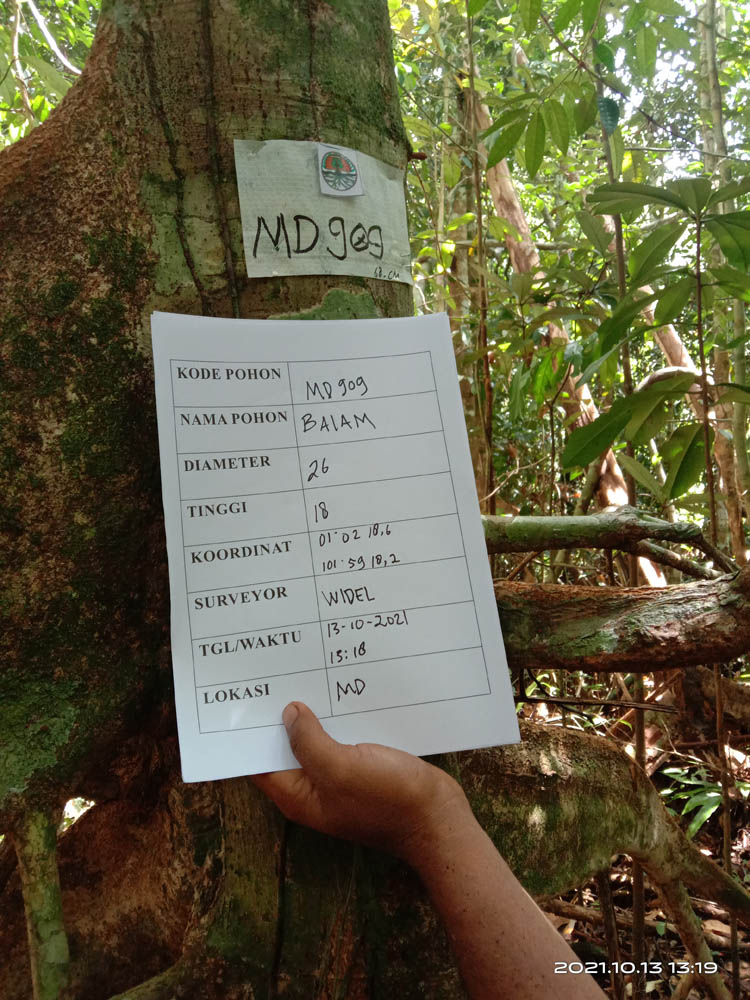 MD909
68.CM
KODE POHON MD909
NAMA POHON BALAM
DIAMETER 26
TINGGI 18
KOORDINAT 01·02 18,6
101·59 18,2
SURVEYOR WIDEL
TGL/WAKTU 13-10-2021
13:18
LOKASI MD
2021.10.13 13:19